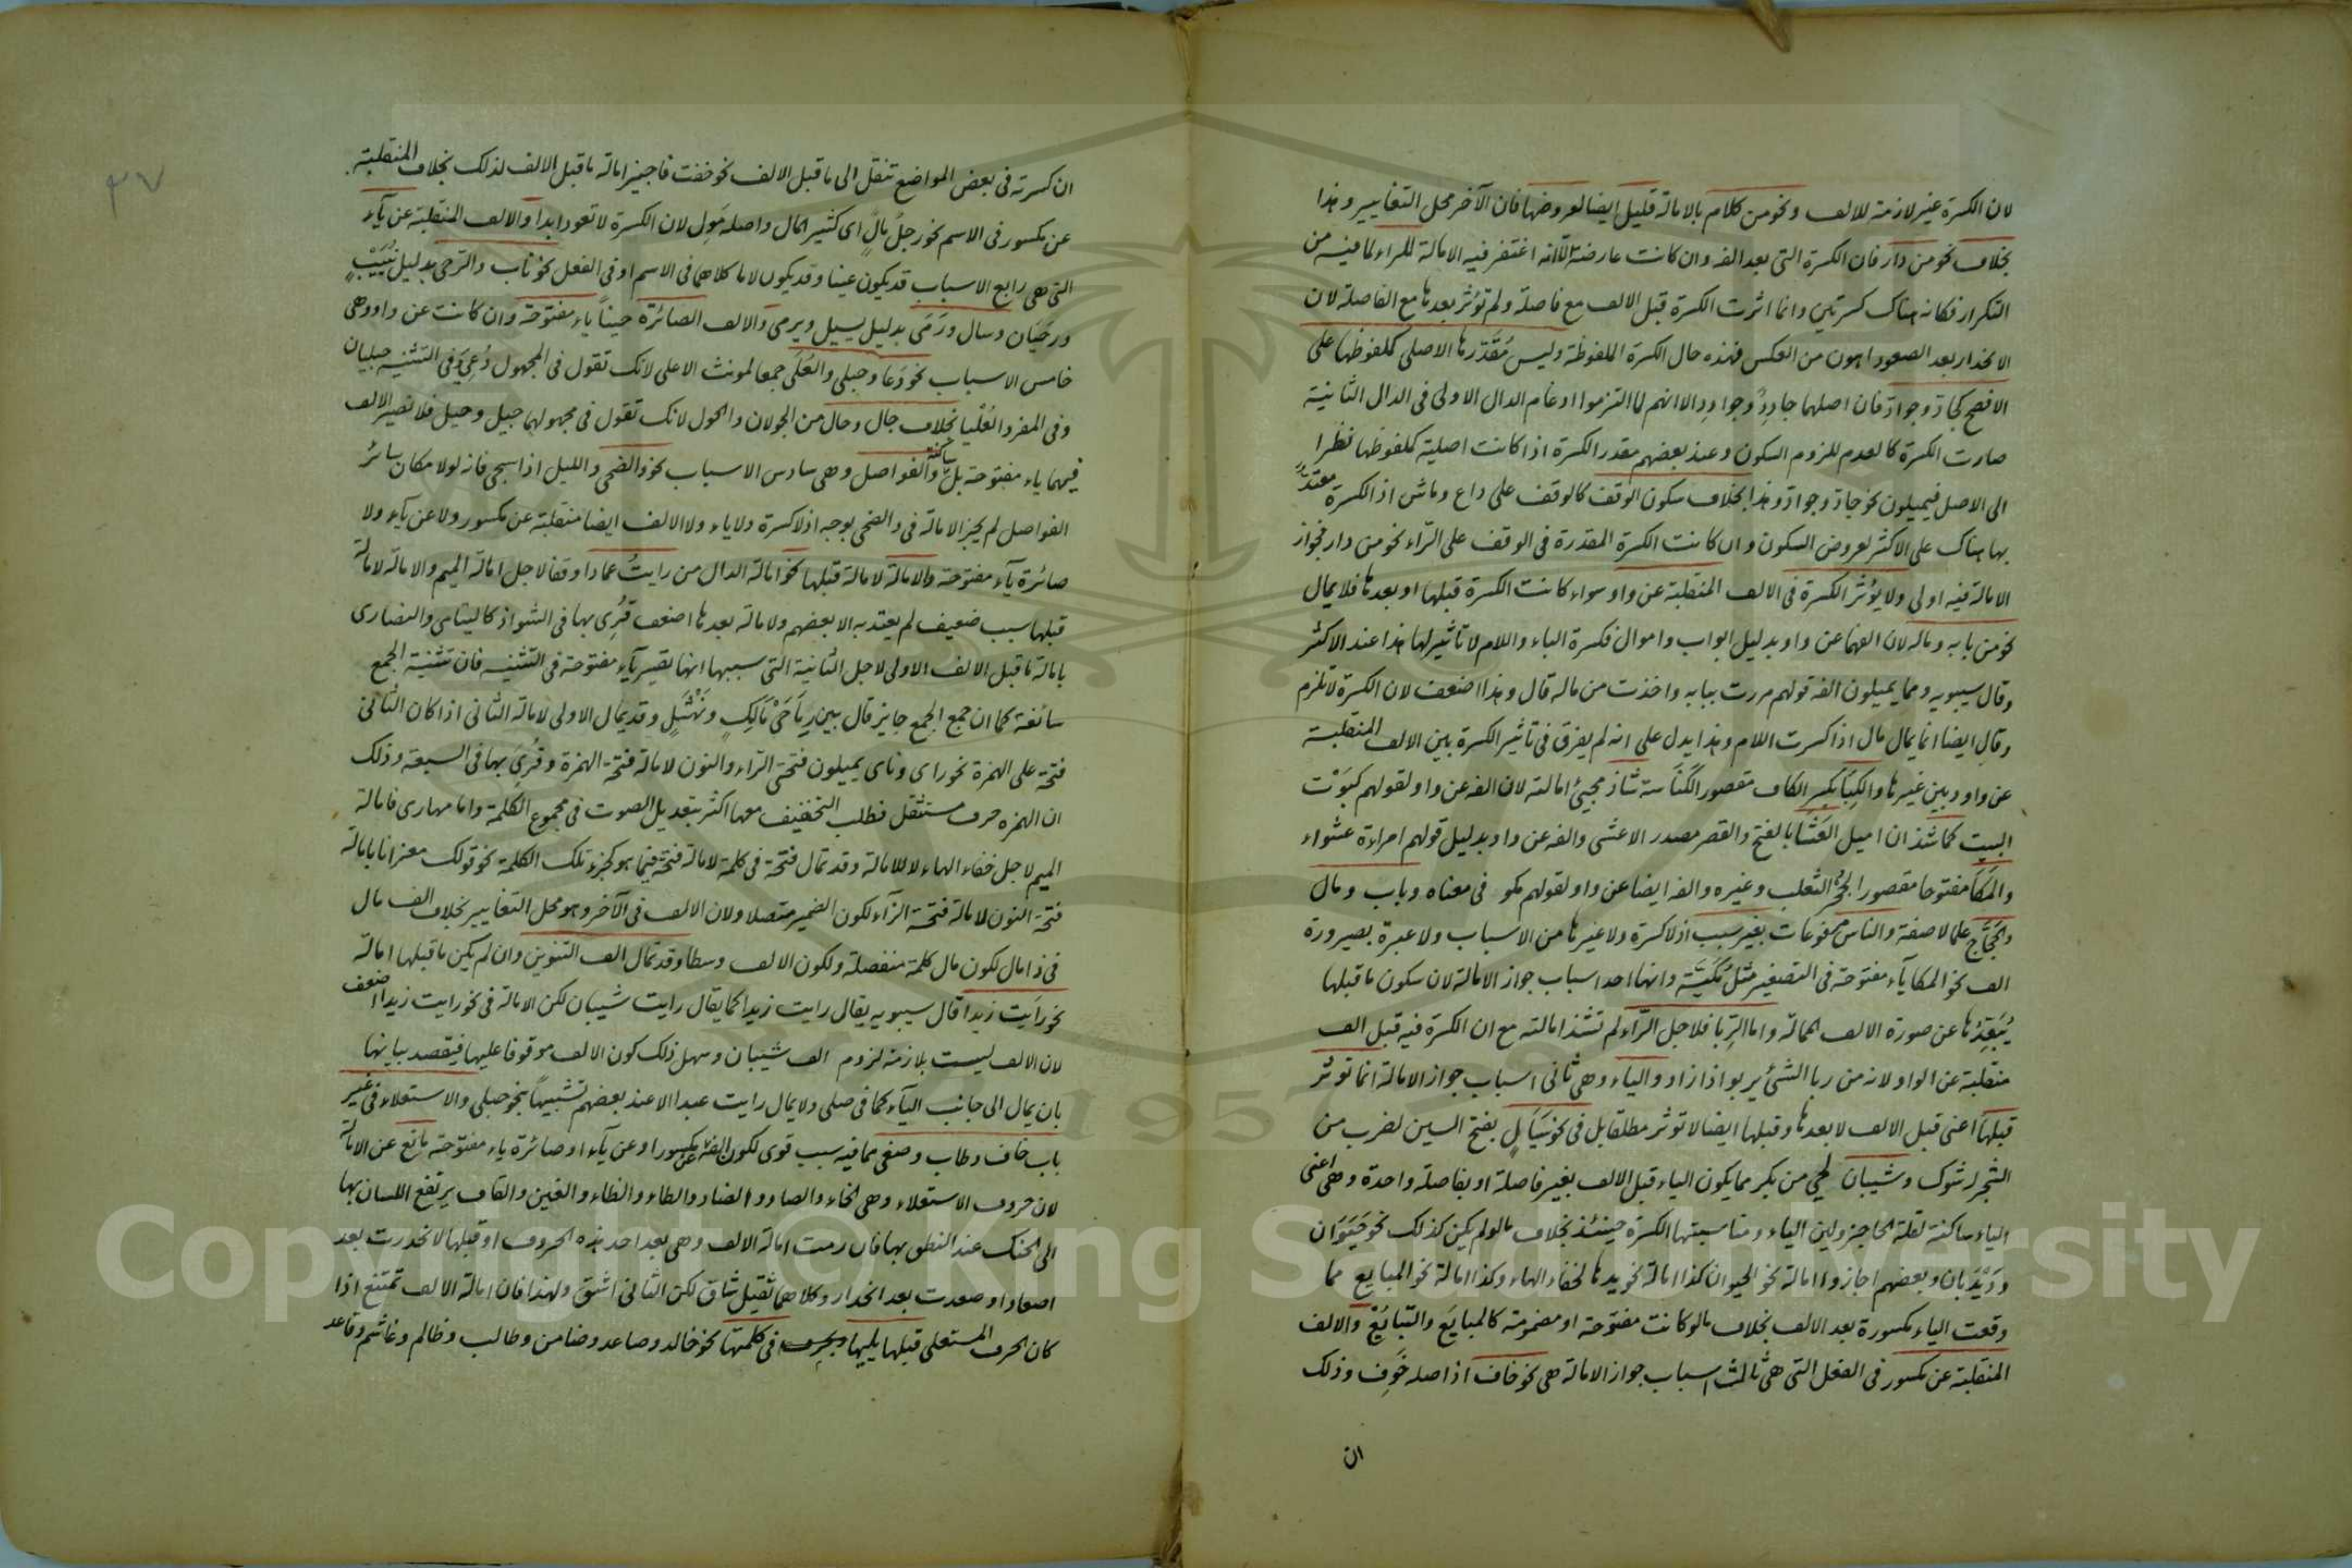 لان الكسرة غير لازمة للالف ونحو من كلام بالامالة قليل ايضا لعروضها فان الآخر محل التغايير وهذا
بخلاف نحو من دار فان الكسرة التى بعد الفه وان كانت عارضة الا انه اغتفر فيه الامالة للراء لما فيه من
التكرار فكانه هناك كسرتين وانما اثرت الكسرة قبل الالف مع فاصلة ولم تؤثر بعدها مع الفاصلة لان
الانحدار بعد الصعود اهون من العكس فهذه حال الكسرة الملفوظة وليس مقدرها الاصلى كملفوظها على
الافصح كجادّ وجوادّ فان اصلهما جادِدٌ وجوادِد الا انهم لما التزموا ادغام الدال الاولى فى الدال الثانية
صارت الكسرة كالعدم للزوم السكون وعند بعضهم مقدر الكسرة اذا كانت اصلية كملفوظها نظرا
الى الاصل فيميلون نحو جادّ وجوادّ وهذا بخلاف سكون الوقف كالوقف على داع وماش اذ الكسرة معتدّ
بها هناك على الاكثر لعروض السكون وان كانت الكسرة المقدرة فى الوقف على الراء نحو من دار فجواز
الامالة فيه اولى ولا يؤثر الكسرة فى الالف المنقلبة عن واو سواء كانت الكسرة قبلها او بعدها فلا يمال
نحو من بابه وماله لان الفهما عن واو بدليل ابواب واموال فكسرة الباء واللام لا تاثير لها هذا عند الاكثر
وقال سيبويه ومما يميلون الفه قولهم مررت ببابه واخذت من ماله قال وهذا اضعف لان الكسرة لا تلزم
وقال ايضا انما يمال مال اذا كسرت اللام وهذا يدل على انه لم يفرق فى تاثير الكسرة بين الالف المنقلبة
عن واو وبين غيرها والكِبَا بكسر الكاف مقصور الكُناسة شاذ مجيئ امالته لان الفه عن واو لقولهم كبَوْت
البيت كما شذ ان اميل العَشَا بالفتح والقصر مصدر الاعشى والفه عن واو بدليل قولهم امراءة عشواء
والمَكَا مفتوحا مقصورا لجُحْر الثعلب وغيره والفه ايضا عن واو لقولهم مكو فى معناه وباب ومال
والحَجَّاج علما لا صفة والناس مرفوعات بغير سبب اذ لا كسرة ولا غيرها من الاسباب ولا عبرة بصيرورة
الف نحو المكا ياء مفتوحة فى التصغير مثل مُكَيَّة وانها احد اسباب جواز الامالة لان سكون ما قبلها
يُبَعِّدُها عن صورة الالف الممالة واما الرِّبا فلاجل الرّاء لم تشذ امالته مع ان الكسرة فيه قبل الف
منقلبة عن الواو لانه من ربا الشئ يربو اذا زاد والياء وهى ثانى اسباب جواز الامالة انما تؤثر
قبلها اعنى قبل الالف لا بعدها وقبلها ايضا لا تؤثر مطلقا بل فى نحو سَيَالٍ بفتح السين لضرب من
الشجر له شوك وشيبان لحى من بكر مما يكون الياء قبل الالف بغير فاصلة او بفاصلة واحدة وهى اعنى
الياء ساكنة لقلة الحاجز ولين الياء ومناسبتها الكسرة حينئذ بخلاف ما لو لم يكن كذلك نحو حَيَوَان
ودَيْدَبان وبعضهم اجازوا امالة نحو الحيوان كذا امالة نحو يدها لخفاء الهاء وكذا امالة نحو المبايع مما
وقعت الياء مكسورة بعد الالف بخلاف ما لو كانت مفتوحة او مضمومة كالمبايَع والتبايُع والالف
المنقلبة عن مكسور فى الفعل التى هى ثالث اسباب جواز الامالة هى نحو خاف اذ اصله خَوِف وذلك
ان
ان كسرته فى بعض المواضع تنقل الى ما قبل الالف نحو خفت فاجيز امالة ما قبل الالف لذلك بخلاف المنقلبة
عن مكسور فى الاسم نحو رجلٌ مالٌ اى كثير المال واصله مَوِل لان الكسرة لا تعود ابدا والالف المنقلبة عن ياء
التى هى رابع الاسباب قد يكون عينا وقد يكون لاما كلاهما فى الاسم او فى الفعل نحو ناب والرحى بدليل نُيَيْبٍ
ورحَيَان وسال ورَمَى بدليل يسيل ويرمى والالف الصائرة حيناً ياء مفتوحة وان كانت عن واو وهى
خامس الاسباب نحو دَعَا وحبلى والعُلَى جمعا لمونث الاعلى لانك تقول فى المجهول دُعِىَ وفى التثنيه حبليان
وفى المفرد العُلْيا بخلاف جال وحال من الجولان والحول لانك تقول فى مجهولهما جيل وحيل فلا تصير الالف
فيهما ياء مفتوحة بل ساكنة والفواصل وهى سادس الاسباب نحو والضحى والليل اذا سجى فانه لولا مكان سائر
الفواصل لم يجز الامالة فى والضحى بوجه اذ لا كسرة ولا ياء ولا الالف ايضا منقلبة عن مكسور ولا عن ياء ولا
صائرة ياء مفتوحة والامالة لامالة قبلها نحو امالة الدال من رايتُ عمادا وقفا لاجل امالة الميم والامالة لامالة
قبلها سبب ضعيف لم يعتد به الا بعضهم ولامالة بعدها اضعف قُرِى بها فى الشواذ كاليتامى والنصارى
بامالة ما قبل الالف الاولى لاجل الثانية التى سببها انها تصير ياء مفتوحة فى التثنيه فان تثنية الجمع
سائغة كما ان جمع الجمع جايز قال بين رِمَاحَىْ مَالِكٍ ونَهْشَلٍ وقد يمال الاولى لامالة الثانى اذا كان الثانى
فتحة على الهمزة نحو راى وناى يميلون فتحتى الرّاء والنون لامالة فتحة الهمزة وقُرِئ بها فى السبعة وذلك
ان الهمزه حرف مستثقل فطلب التخفيف معها اكثر بتعديل الصوت فى مجموع الكلمة واما مهارى فامالة
الميم لاجل خفاء الهاء لا للامالة وقد تمال فتحة فى كلمة لامالة فتحة فيما هو كجزء تلك الكلمة نحو قولك معزانا بامالة
فتحة النون لامالة فتحة الزاء لكون الضمير متصلا ولان الالف فى الآخر وهو محل التغايير بخلاف الف مال
فى ذا مال لكون مال كلمة منفصلة ولكون الالف وسطا وقد تمال الف التنوين وان لم يكن ما قبلها امالة
نحو رايت زيدا قال سيبويه يقال رايت زيدا كما يقال رايت شيبان لكن الامالة فى نحو رايت زيدا اضعف
لان الالف ليست بلازمة لزوم الف شيبان وسهل ذلك كون الالف موقوفا عليها فيقصد بيانها
بان يمال الى جانب الياء كما فى حبلى ولا يمال رايت عبدا الا عند بعضهم تشبيهاً بنحو حبلى والاستعلاء فى غير
باب خاف وطاب وصغى مما فيه سبب قوى لكون الفه عن مكسور او عن ياء او صائرة ياء مفتوحة مانع عن الامالة
لان حروف الاستعلاء وهى الخاء والصاد والضاد والطاء والظاء والغين والقاف يرتفع اللسان بها
الى الحنك عند النطق بها فان رمت امالة الالف وهى بعد احد هذه الحروف او قبلها لانحدرت بعد
اصعاد او صعدت بعد انحدار وكلاهما ثقيل شاق لكن الثانى اشق ولهذا فان امالة الالف تمتنع اذا
كان الحرف المستعلى قبلها يليها فى كلمتها نحو خالد وصاعد وضامن وطالب وظالم وغاشم وقاعد
٣٧
Copyright © King Saud University
1957